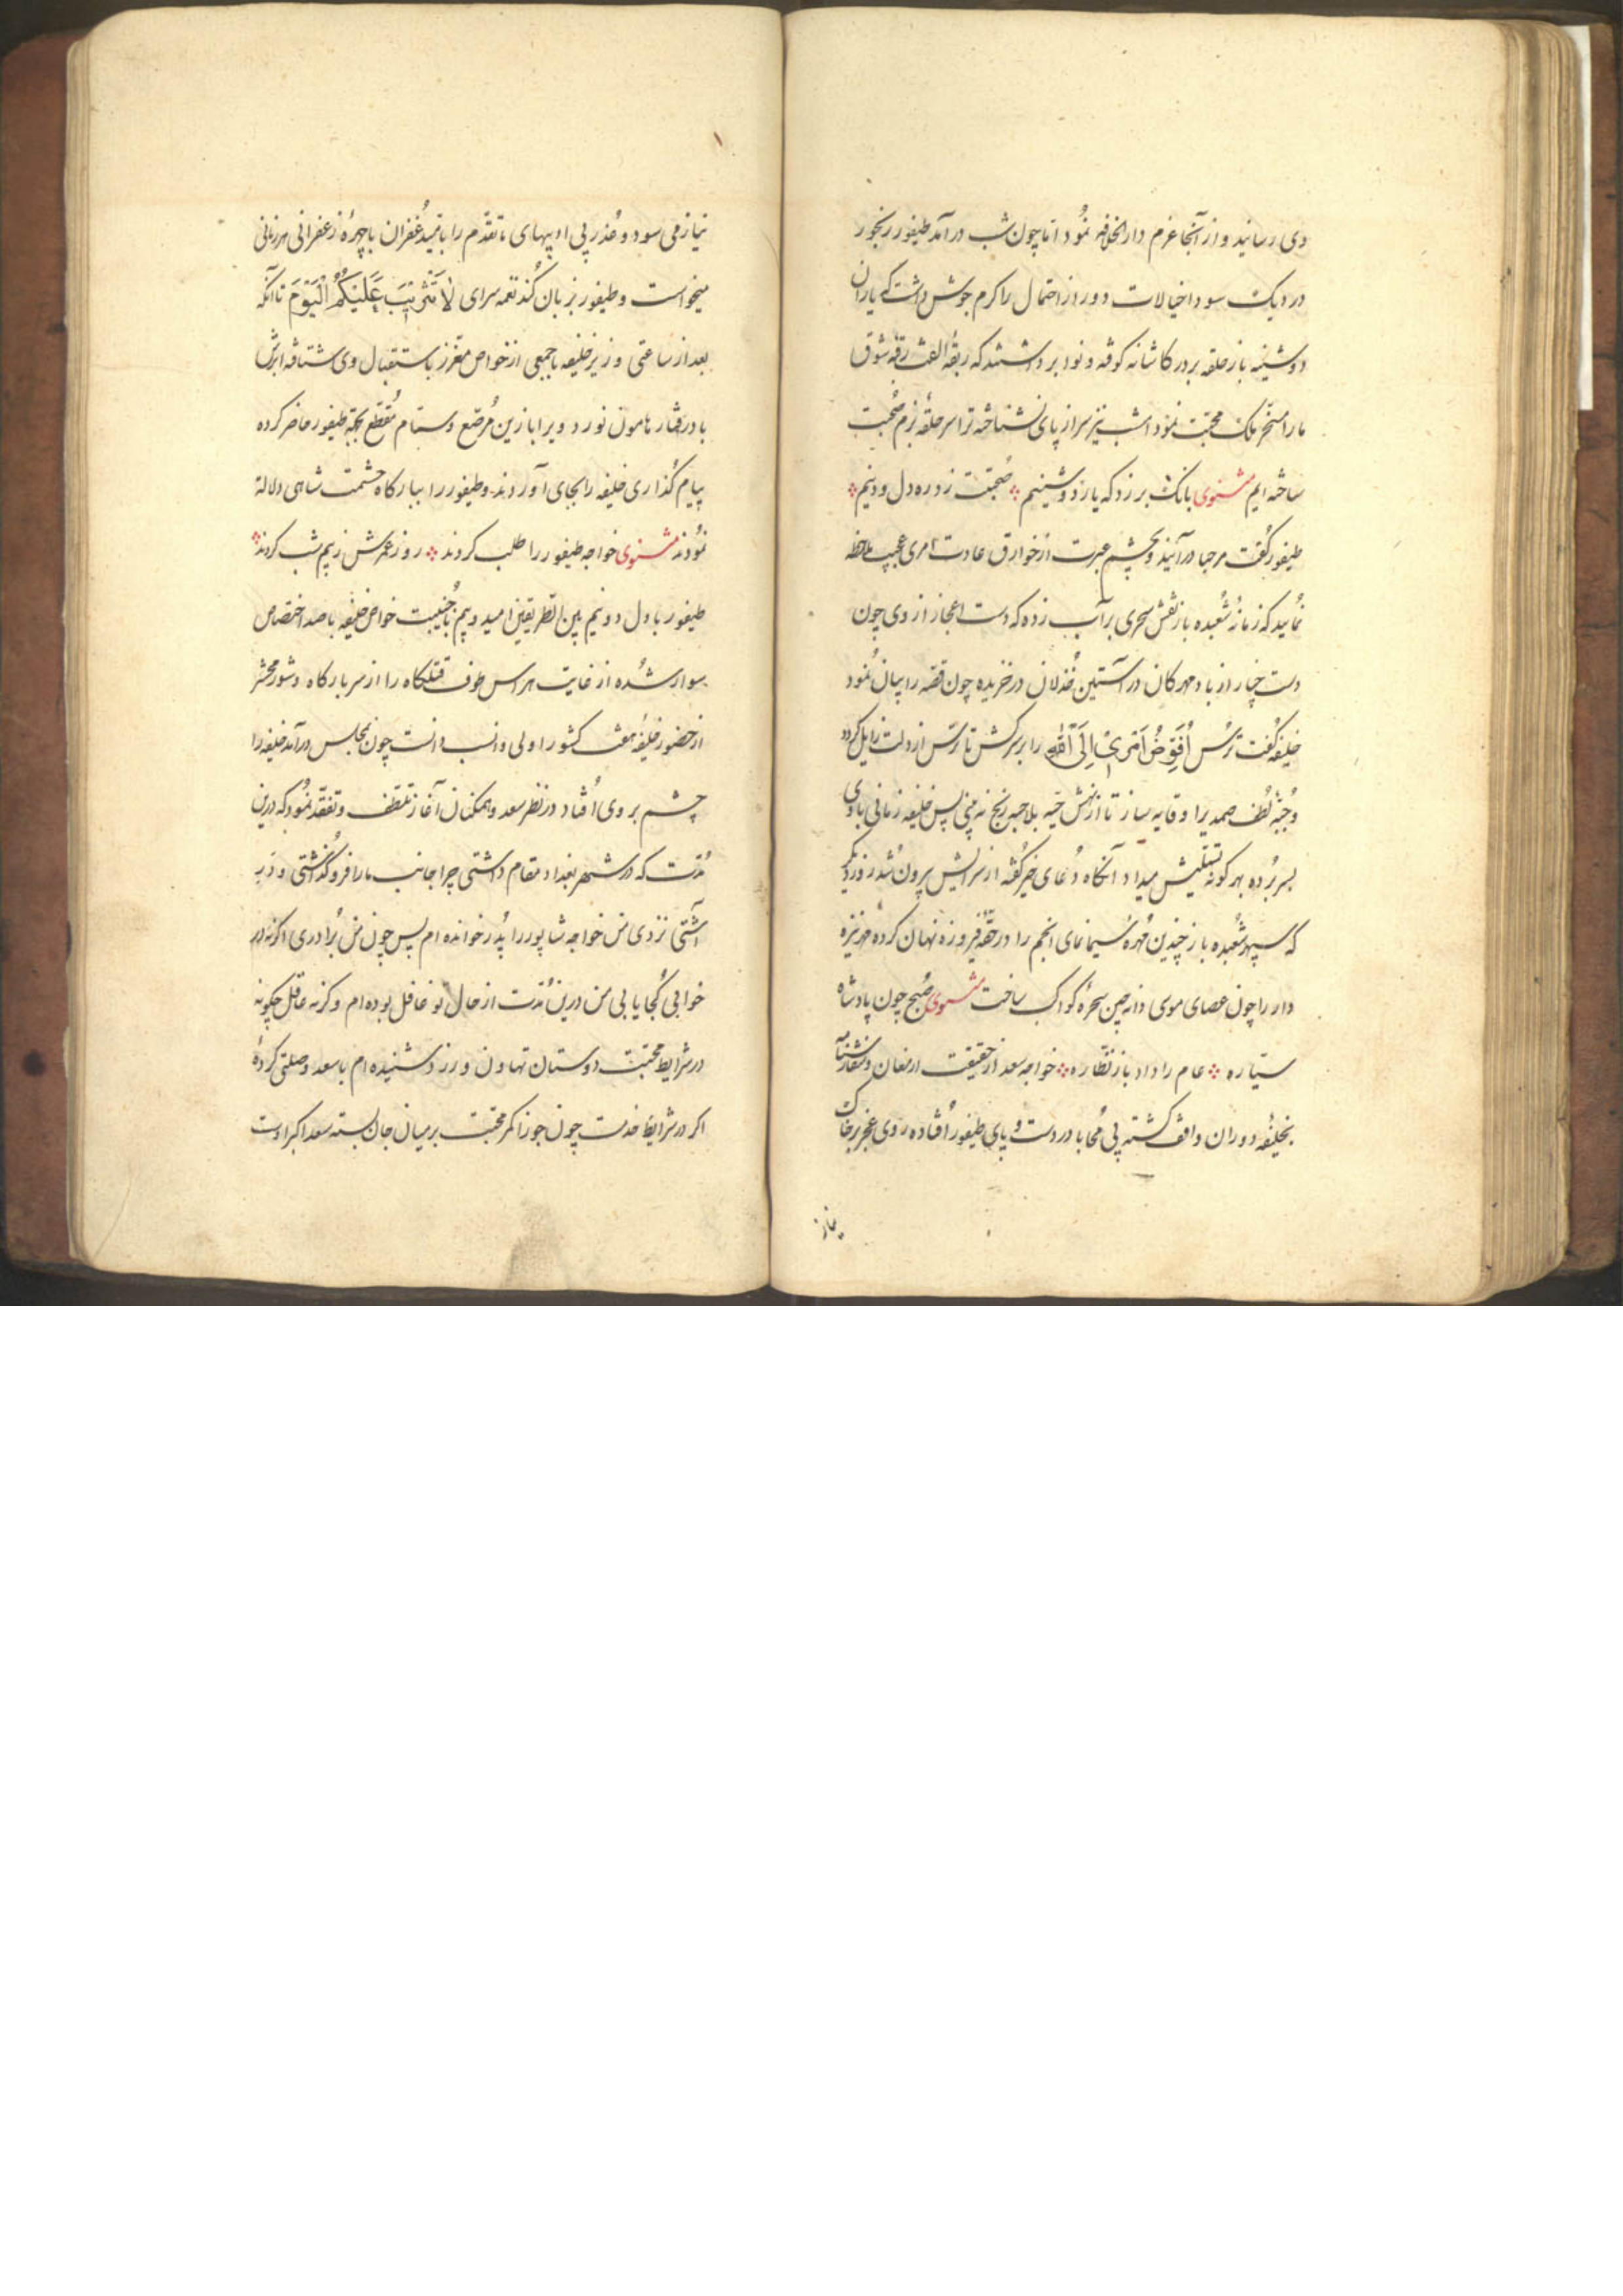 وی رسانید و از آنجا عزم دارالخلافه نمود اما چون شب درآمد طیفور رنجور
در دیک سودا خیالات دور از احتمال را گرم جوش داشت که یاران
دوشینه باز حلقه بر در کاشانه کوفته و نوا برداشتند که ربقه الفت رقبه شوق
ما را مسخر ملک محبت نمود امشب نیز سر از پای نشناخته ترا سر حلقه بزم صحبت
ساخته ایم مثنوی بانک برزد که یار دوشینیم صحبت زد ره دل و دینیم
طیفور گفت مرحبا درآیند و بچشم عبرت از خوارق عادت امری عجیب ملاحظه
نمایید که زمانه شعبده باز نقش سحری بر آب زده که دست اعجاز از وی چون
دست چنار از باد مهرکان در آستین خذلان در خزیده چون قصه را بیان نمود
خلیفه گفت ترس اُفَوِّضُ اَمْرِیْ اِلَی اللّٰهِ را بر سر کش تا ترس از دلت زایل کردد
و جبه لطف صمد را وقایه ساز تا از نهش حیه بلا حبه رنج نه بینی پس خلیفه زمانی با وی
بسر برده بهر کونه تسلیتش میداد آنکاه دعای خیر گفته از سرایش بیرون شد روز دیگر
که سپهر شعبده باز چندین مهره سیما نمای انجم را در حقه فیروزه نهان کرده مهر نیزه
دار را چون عصای موسی دانه چین سحره کواکب ساخت مثنوی صبح چون پادشاه
سیاره عام را داد باز نظاره خواجه سعد از حقیقت ارمغان و
بخلیفه دوران واقف گشته بی محابا در دست و پای طیفور افتاده روی عجز بر خاک
نیاز
نیاز می سود و عذر بی ادبیهای ما تقدم را بامید غفران با چهره زعفرانی هر زمانی
میخواست و طیفور بزبان کند نغمه سرای لَا تَثْرِیْبَ عَلَیْکُمُ الْیَوْمَ تا آنکه
بعد از ساعتی وزیر خلیفه با جمعی از خواص معزز باستقبال وی شتافته ابرش
باد رفتار هامون نورد ویرا با زین مرصع و ستام مقطع بجهة طیفور حاضر کرده
پیام گذاری خلیفه را بجای آوردند و طیفور را ببارکاه حشمت شاهی دلالة
نمودند مثنوی خواجه طیفور را طلب کردند روز عمرش ز بیم شب کردند
طیفور با دل دو نیم بین الطریقین امید و بیم بجنیبت خواص خلیفه با صد اختصاص
سوار شده از غایت هراس طوف قتلکاه را از سر بارکاه و شور محشر
از حضور خلیفه هفت کشور اولی و انسب دانست چون بمجلس درآمد خلیفه را
چشم بر وی افتاد در نظر سعد و همکنان آغاز تلطف و تفقد نمود که درین
مدت که در شهر بغداد مقام داشتی چرا جانب ما را فرو گذاشتی و در
آشتی نزدی من خواجه شاپور را پدر خوانده ام پس چون من برادری اگر نه در
خوابی کجا یابی من درین مدت از حال تو غافل بوده ام و کرنه عاقل چکونه
در شرایط محبت دوستان تهاون ورزد شنیده ام با سعد وصلتی کرده
اکر در شرایط خدمت چون جوزا کمر محبت بر میان جان بسته سعد اکبر اوست